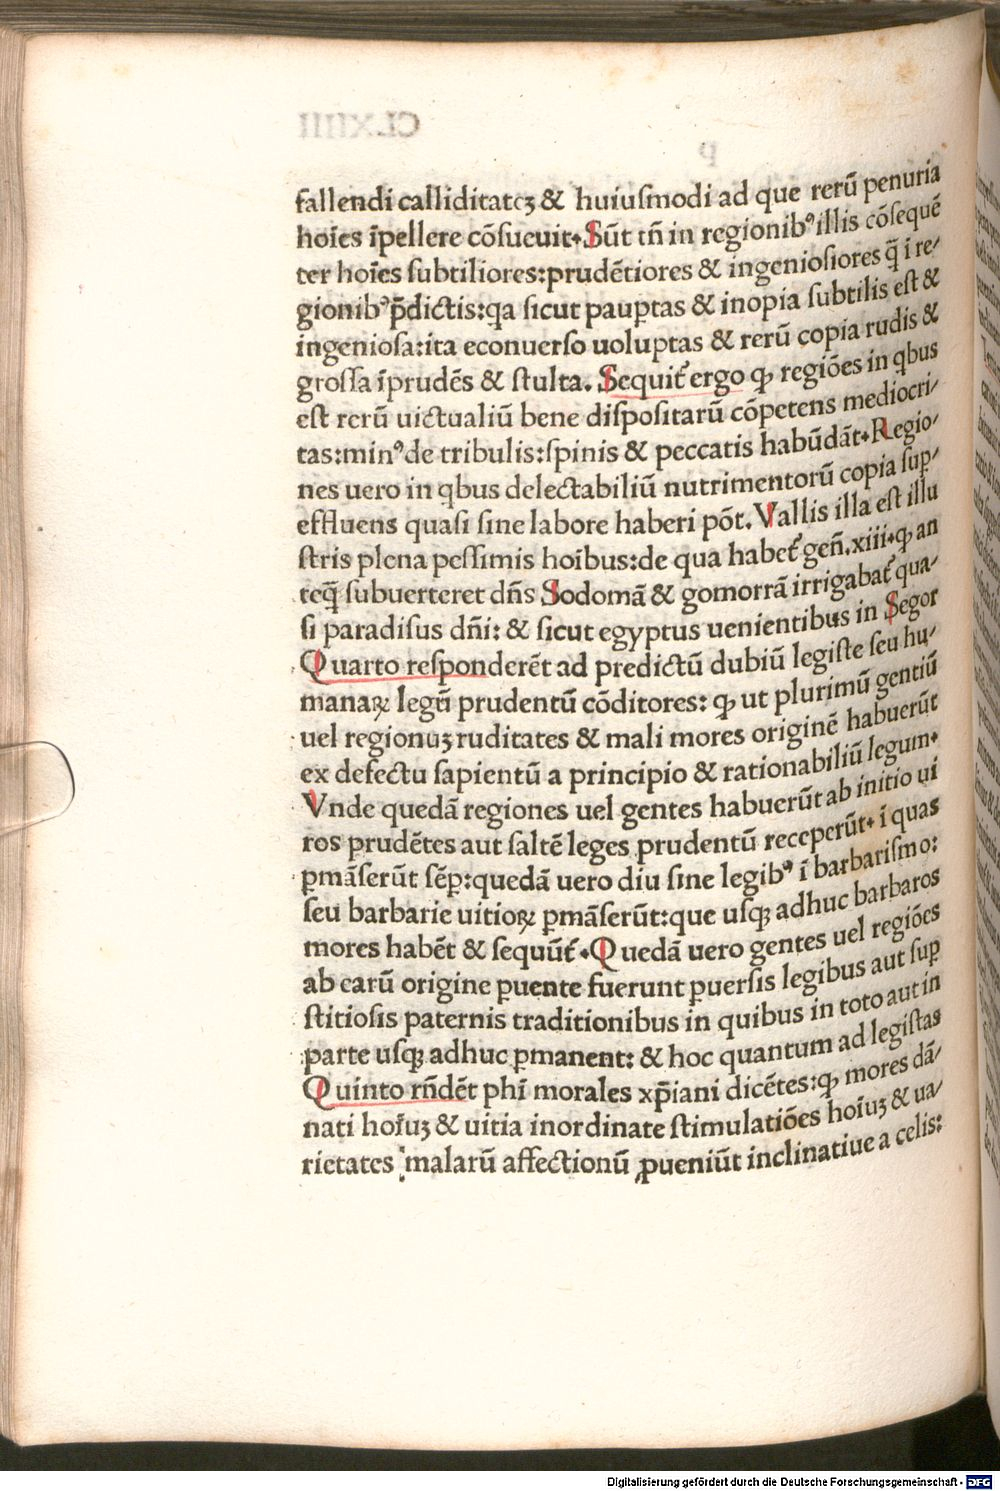 fallendi calliditatēʒ & huiuſmodi ad que rerū penuria
hoīes īpellere cōſueuit. Sūt tñ in regionibꝰ illis cōſequē
ter hoīes ſubtiliores: prudētiores & ingenioſiores q̄ ī re⸗
gionibꝰ p̄dictis: qa ſicut paup̱tas & inopia ſubtilis eſt &
ingenioſa: ita econuerſo uoluptas & rerū copia rudis &
groſſa īprudēs & ſtulta. Sequit᷑ ergo ꝙ regiōes in qbus
eſt rerū uictualiū bene diſpoſitarū cōpetens mediocri⸗
tas: minꝰ de tribulis: ſpinis & peccatis habūdāt. Regio⸗
nes uero in qbus delectabiliū nutrimentorū copia ſuꝑ⸗
effluens quaſi ſine labore haberi pōt. Vallis illa eſt illu
ſtris plena peſſimis hoībus: de qua habet᷑ geñ. xiii. ꝙ an
teq̄ ſubuerteret dñs Sodomā & gomorrā irrigabat᷑ qua⸗
ſi paradiſus dñi: & ſicut egyptus uenientibus in Segor
Quarto reſponderēt ad predictū dubiū legiſte ſeu hu⸗
manaꝝ legū prudentū cōditores: ꝙ ut plurimū gentiū
uel regionuʒ ruditates & mali mores originē habuerūt
ex defectu ſapientū a principio & rationabiliū legum.
Vnde quedā regiones uel gentes habuerūt ab initio ui
ros prudētes aut ſaltē leges prudentū receperūt. ī quas
ꝑmāſerūt ſēꝑ: quedā uero diu ſine legibꝰ ī barbariſmo:
ſeu barbarie uitioꝝ ꝑmāſerūt: que uſqꝫ adhuc barbaros
mores habēt & ſequūt᷑. Quedā uero gentes uel regiōes
ab earū origine ꝑuente fuerunt ꝑuerſis legibus aut ſuꝑ
ſtitioſis paternis traditionibus in quibus in toto aut in
parte uſqꝫ adhuc ꝑmanent: & hoc quantum ad legiſtas
Quinto rñdēt phī morales xp̄iani dicētes: ꝙ mores dā⸗
nati hoīuʒ & uitia inordinate ſtimulatiōes hoīuʒ & ua⸗
rietates malarū affectionū ꝓueniūt inclinatiue a celis:
Digitalisierung gefördert durch die Deutsche Forschungsgemeinschaft - DFG